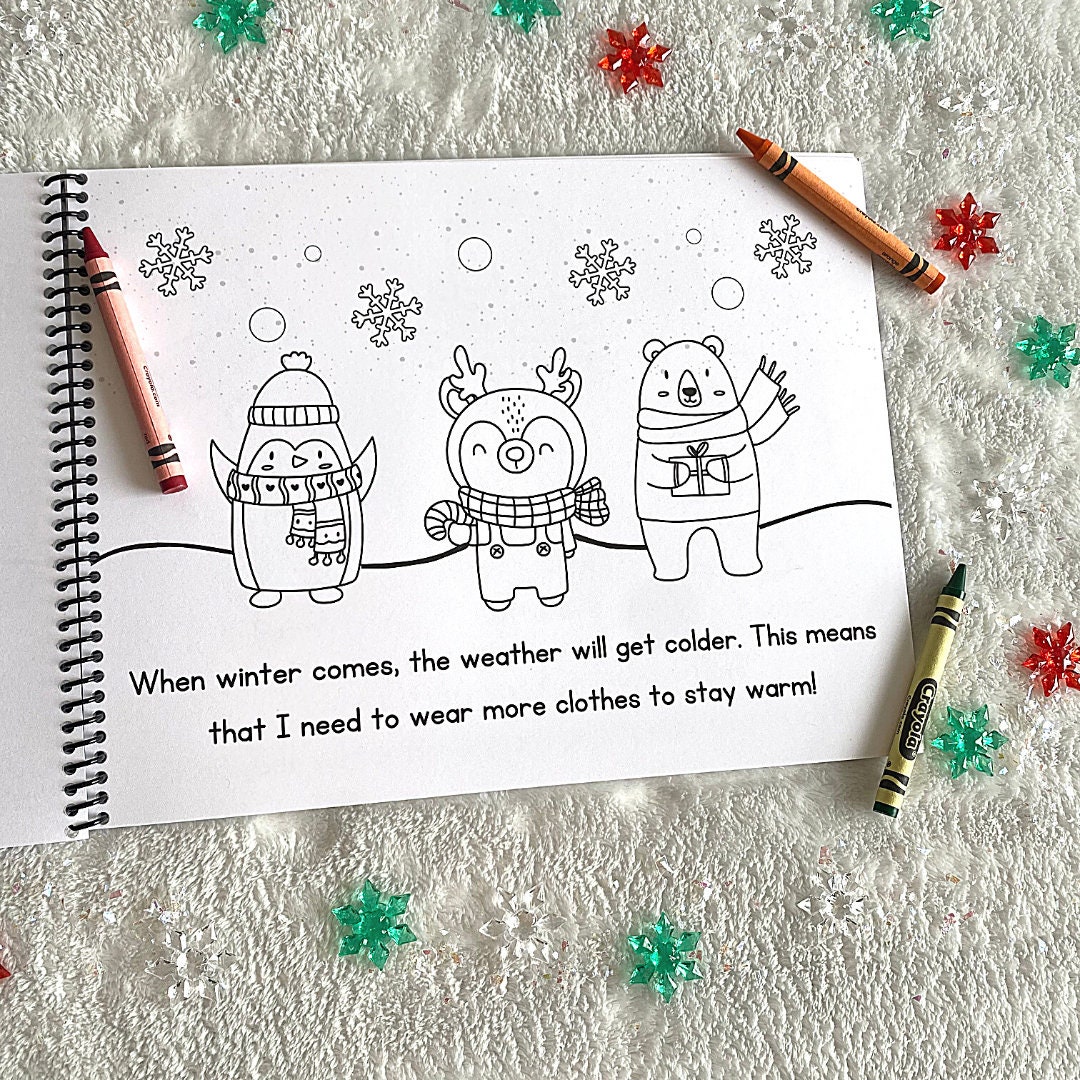 When winter comes, the weather will get colder. This means
that I need to wear more clothes to stay warm!
Crayola